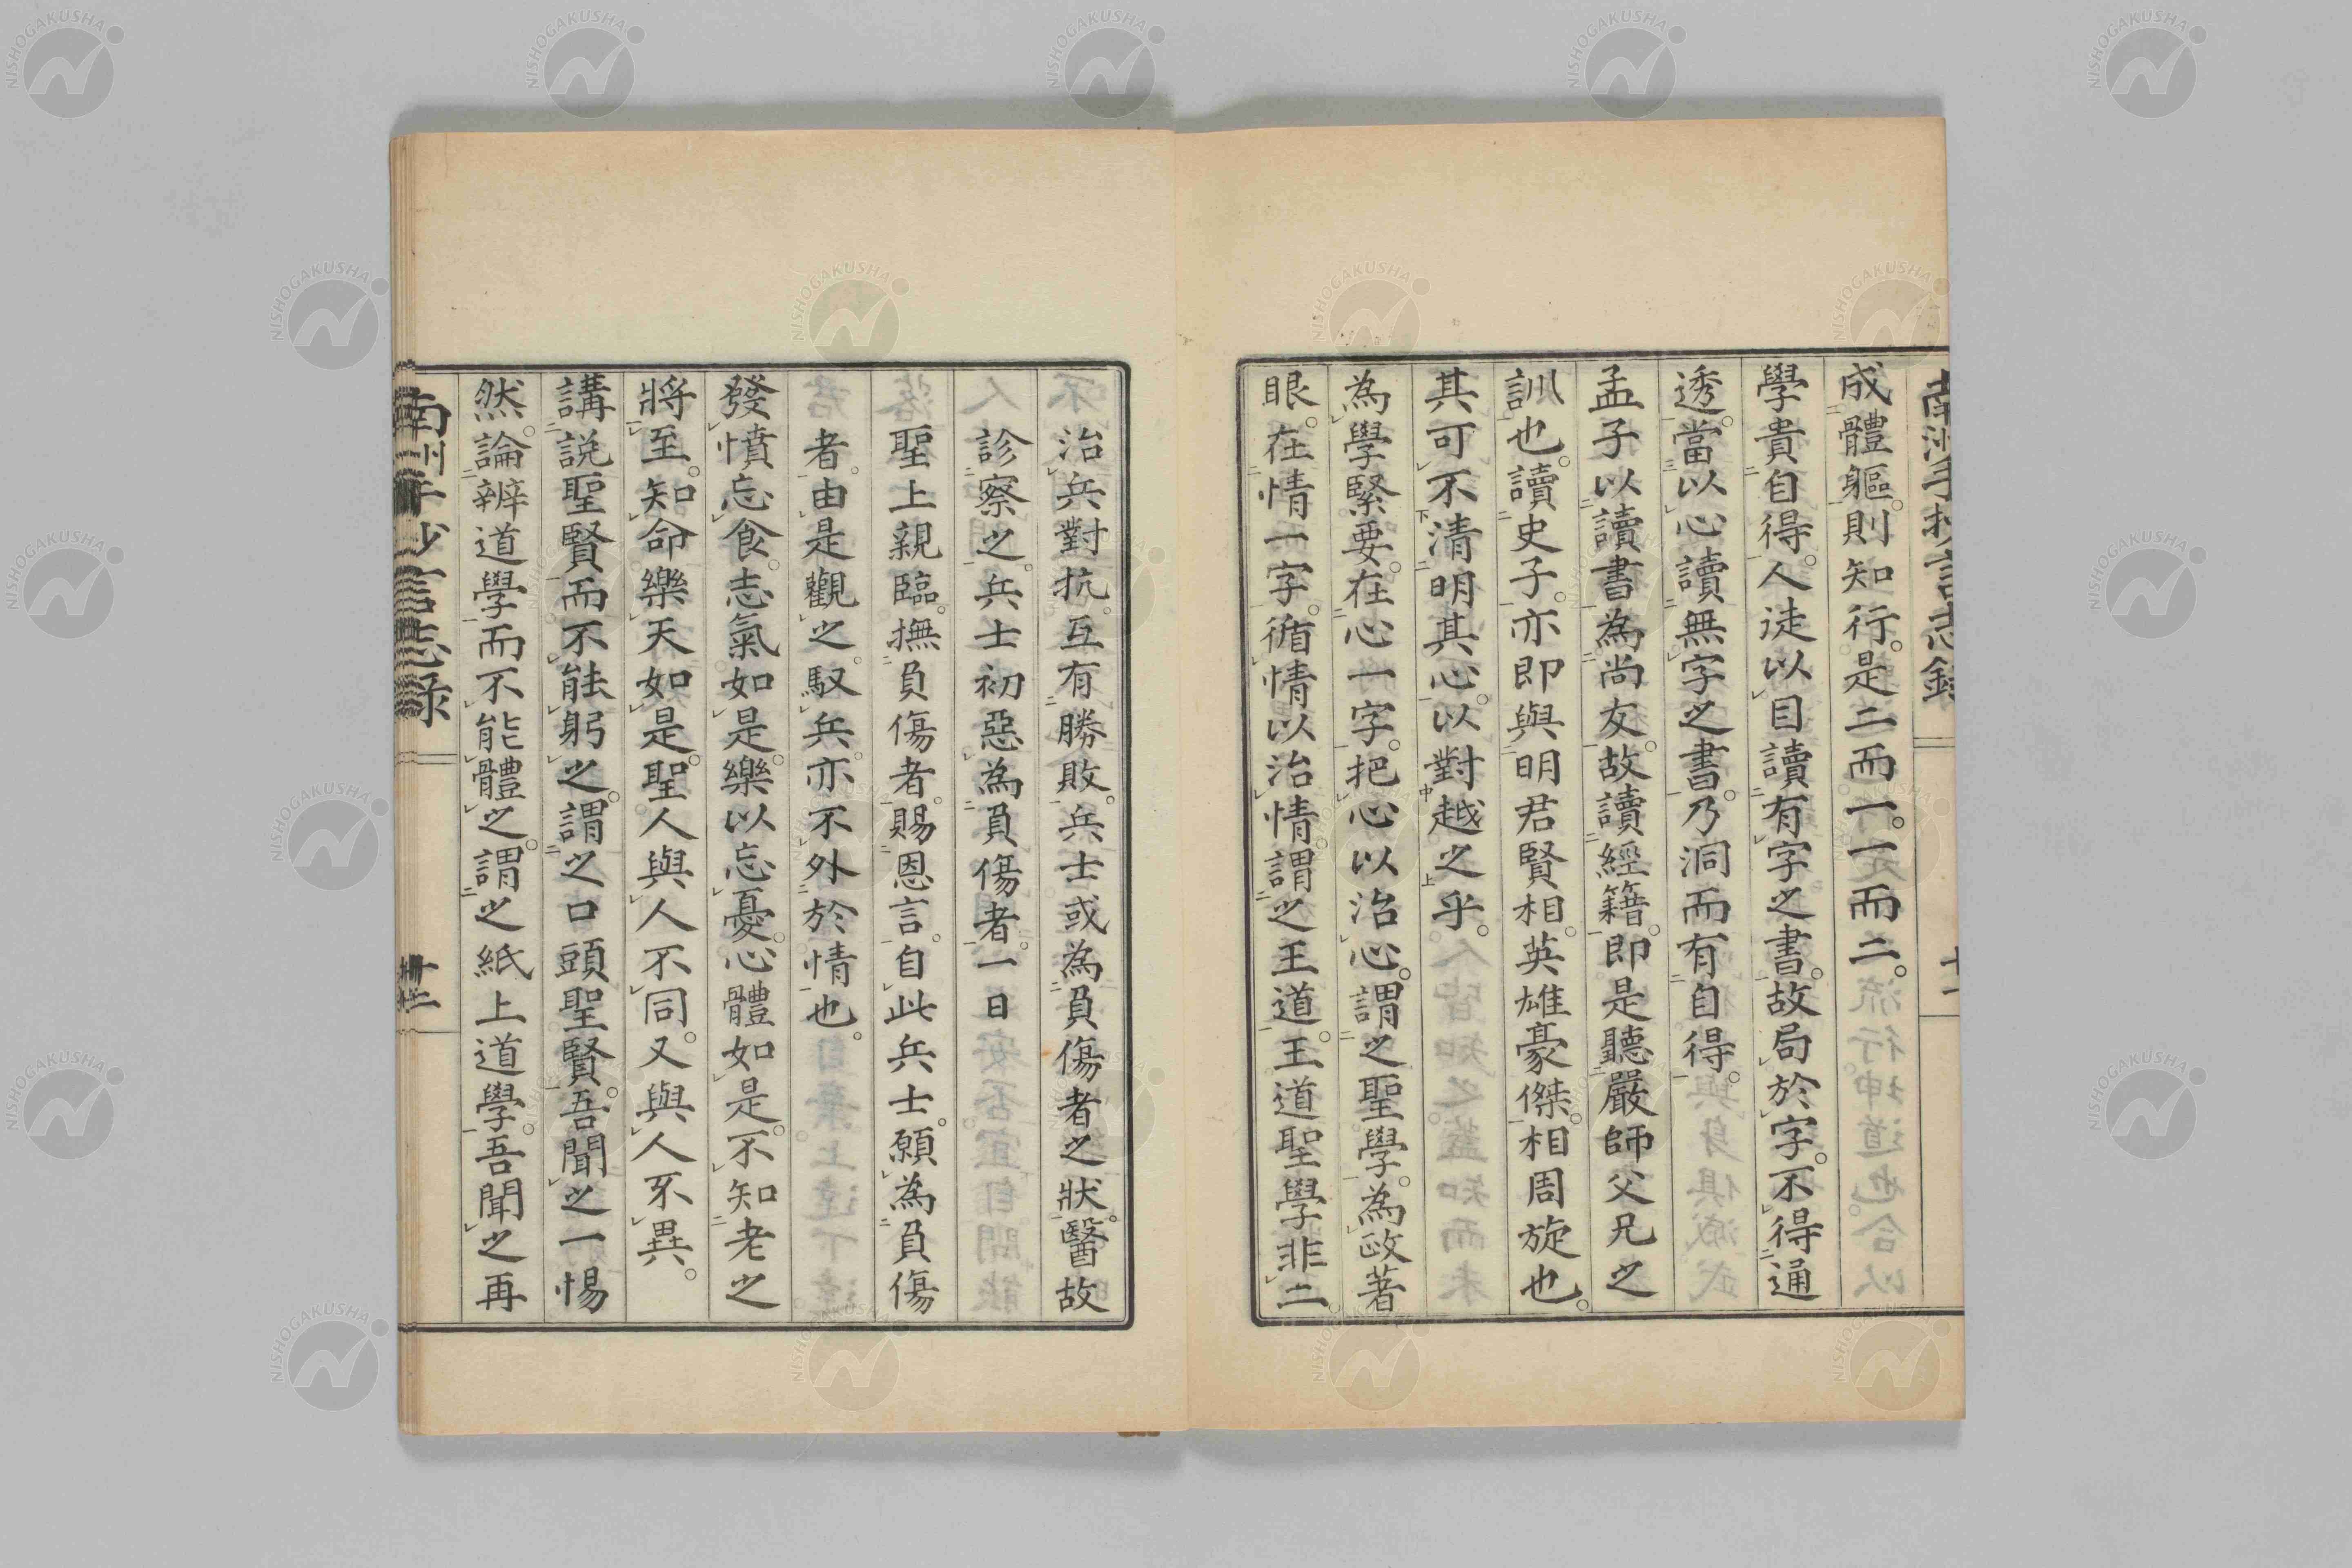 成體軀。則知行。是二而一。一而二。
學貴自得。人徒以目讀有字之書。故局於字。不得通
透。當以心讀無字之書。乃洞而有自得。
孟子以讀書為尚友。故讀經籍。即是聽嚴師父兄之
訓也。讀史子。亦即與明君賢相。英雄豪傑。相周旋也。
其可不清明其心。以對越之乎。
為學緊要。在心一字。把心以治心。謂之聖學。為政著
眼。在情一字。循情以治情。謂之王道。王道聖學非二
治兵對抗。互有勝敗。兵士或為負傷者之狀。醫故
診察之。兵士初惡為負傷者。一日
聖上親臨。撫負傷者。賜恩言。自此兵士。願為負傷
者。由是觀之。馭兵。亦不外於情也。
發憤忘食。志氣如是。樂以忘憂。心體如是。不知老之
將至。知命樂天如是。聖人與人不同。又與人不異。
講説聖賢。而不能躬之。謂之口頭聖賢。吾聞之一惕
然。論辨道學。而不能體之。謂之紙上道學。吾聞之再
南洲手抄言志録
NISHOGAKUSHA